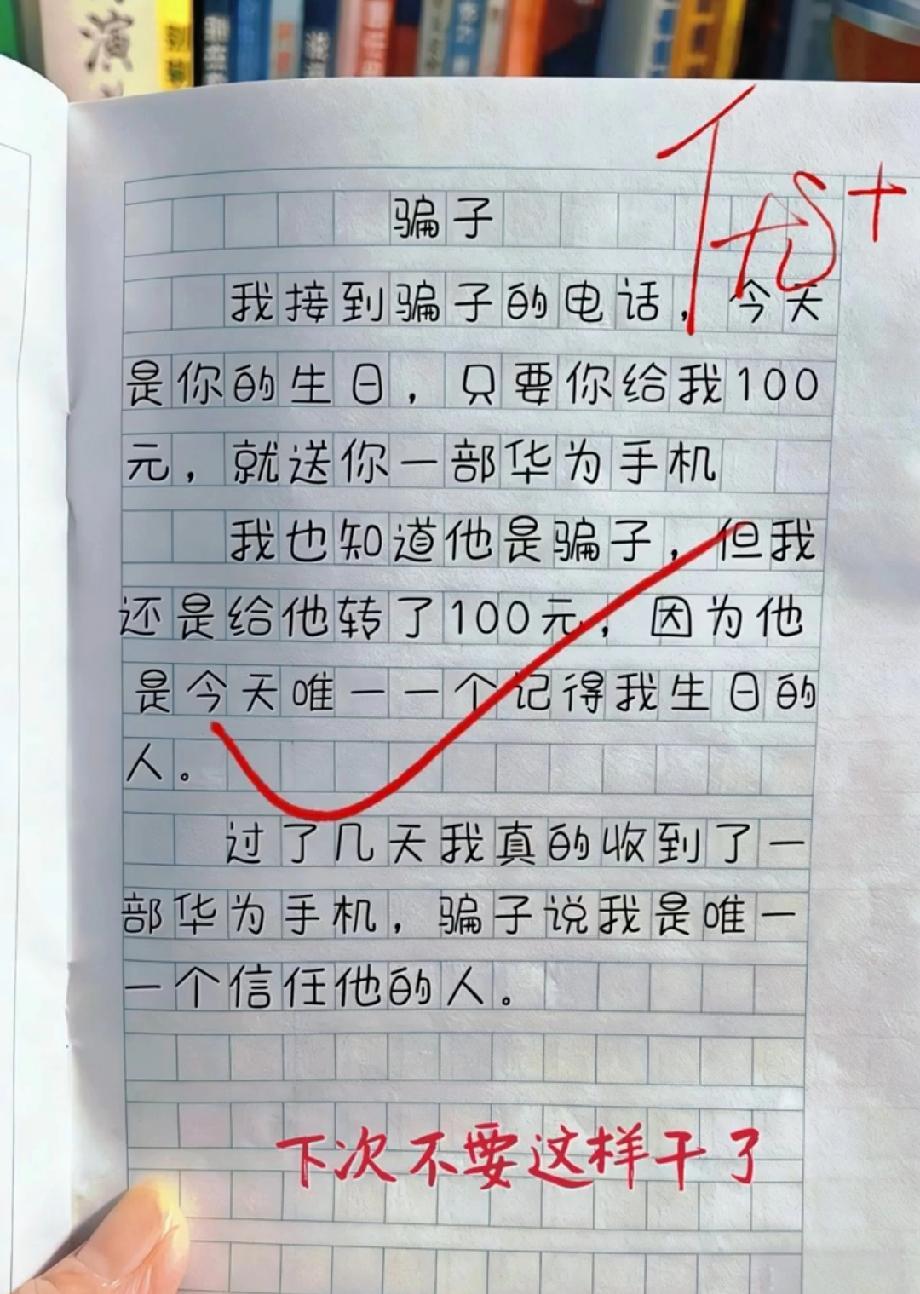 演
优+
骗子
我接到骗子的电话，今天
是你的生日，只要你给我100
元，就送你一部华为手机
我也知道他是骗子，但我
还是给他转了100元，因为他
是今天唯一一个记得我生日的
人。
过了几天我真的收到了一
部华为手机，骗子说我是唯一
一个信任他的人。
下次不要这样干了